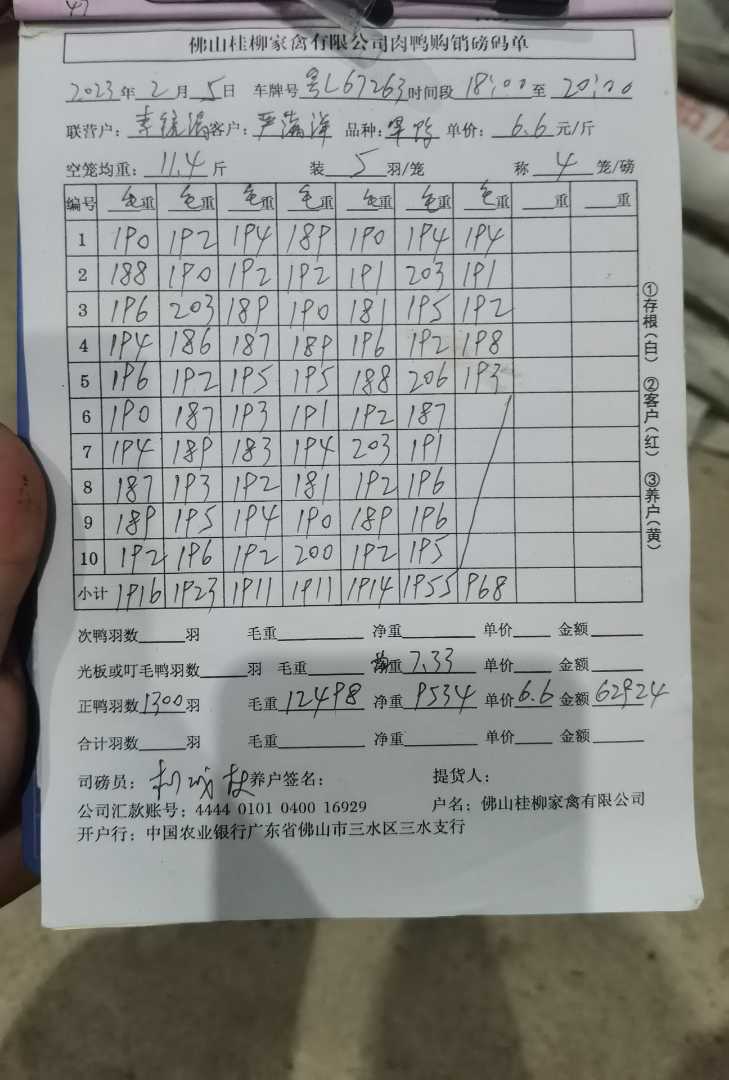 47
佛山桂柳家禽有限公司肉鸭购销磅码单
2023年2月5日 车牌号粤L67263时间段18:00至20:00
联营户：李统 客户：严满洋 品种：旱鸭 单价：6.6元/斤
空笼均重：11.4斤 装5羽/笼 称4笼/磅
编号 毛重 毛重 毛重 毛重 毛重 毛重 毛重 重 重
1 190 192 194 189 190 194 194
2 188 190 192 192 191 203 191
3 196 203 189 190 181 195 192
4 194 186 187 189 196 192 198
5 196 192 195 195 188 206 193
6 190 187 193 191 192 187
7 194 189 183 194 203 191
8 187 193 192 181 192 196
9 189 195 194 190 189 196
10 192 196 192 200 192 195
小计 1916 1923 1911 1911 1914 1955 968
次鸭羽数 羽 毛重 净重 单价 金额
光板或叮毛鸭羽数 羽 毛重 均重7.33 单价 金额
正鸭羽数1300羽 毛重12498 净重9534 单价6.6 金额62924
合计羽数 羽 毛重 净重 单价 金额
司磅员： 养户签名： 提货人：
公司汇款账号：4444 0101 0400 16929 户名：佛山桂柳家禽有限公司
开户行：中国农业银行广东省佛山市三水区三水支行
①存根（白） ②客户（红） ③养户（黄）